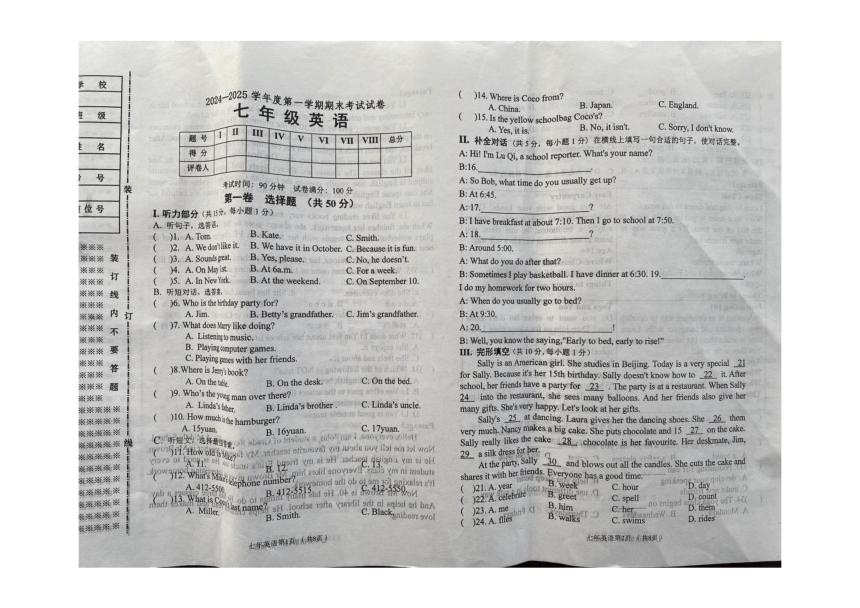 学 校
班 级
姓 名
号
座位号
装
订
线
内
不
要
答
题
装
订
线
2024—2025 学年度第一学期期末考试试卷
七 年 级 英 语
题 号 I II III IV V VI VII VIII 总分
得 分
评卷人
考试时间：90 分钟 试卷满分：100 分
第一卷 选择题 （共 50 分）
I. 听力部分（共 15分，每小题 1 分）
A. 听句子，选答语.
( )1. A. Tom. B. Kate. C. Smith.
( )2. A. We don't like it. B. We have it in October. C. Because it is fun.
( )3. A. Sounds great. B. Yes, please. C. No, he doesn't.
( )4. A. On May 1st. B. At 6a.m. C. For a week.
( )5. A. In New York. B. At the weekend. C. On September 10.
B. 听短对话，选答案.
( )6. Who is the birthday party for?
A. Jim. B. Betty's grandfather. C. Jim's grandfather.
( )7. What does Mary like doing?
A. Listening to music.
B. Playing computer games.
C. Playing games with her friends.
( )8.Where is Jerry's book?
A. On the table. B. On the desk. C. On the bed.
( )9. Who's the young man over there?
A. Linda's father. B. Linda's brother . C. Linda's uncle.
( )10. How much is the hamburger?
A. 15yuan. B. 16yuan. C. 17yuan.
C. 听短文，选择最佳答案.
( )11. How old is Mike?
A. 11. B. 12. C. 13.
( )12. What's Mike's telephone number?
A. 412-5500 B. 412-5515 C. 412-5550
( )13. What is Coco's last name?
A. Miller. B. Smith. C. Black.
七年英语第1页（共8页）
( )14. Where is Coco from?
A. China. B. Japan. C. England.
( )15. Is the yellow schoolbag Coco's?
A. Yes, it is. B. No, it isn't. C. Sorry, I don't know.
II. 补全对话（共 5 分，每小题 1 分）在横线上填写一句合适的句子，使对话完整。
A: Hi! I'm Lu Qi, a school reporter. What's your name?
B:16.____________________.
A: So Bob, what time do you usually get up?
B: At 6:45.
A: 17.____________________?
B: I have breakfast at about 7:10. Then I go to school at 7:50.
A: 18.____________________?
B: Around 5:00.
A: What do you do after that?
B: Sometimes I play basketball. I have dinner at 6:30. 19.____________________.
I do my homework for two hours.
A: When do you usually go to bed?
B: At 9:30.
A: 20.____________________!
B: Well, you know the saying,"Early to bed, early to rise!"
III. 完形填空（共 10 分，每小题 1 分）
Sally is an American girl. She studies in Beijing. Today is a very special 21
for Sally. Because it's her 15th birthday. Sally doesn't know how to 22 it. After
school, her friends have a party for 23 . The party is at a restaurant. When Sally
24 into the restaurant, she sees many balloons. And her friends also give her
many gifts. She's very happy. Let's look at her gifts.
Sally's 25 at dancing. Laura gives her the dancing shoes. She 26 them
very much. Nancy makes a big cake. She puts chocolate and 15 27 on the cake.
Sally really likes the cake 28 chocolate is her favourite. Her deskmate, Jim,
29 a silk dress for her.
At the party, Sally 30 and blows out all the candles. She cuts the cake and
shares it with her friends. Everyone has a good time.
( )21. A. year B. week C. hour D. day
( )22. A. celebrate B. greet C. spell D. count
( )23. A. me B. him C. her D. them
( )24. A. flies B. walks C. swims D. rides
七年英语第2页（共8页）